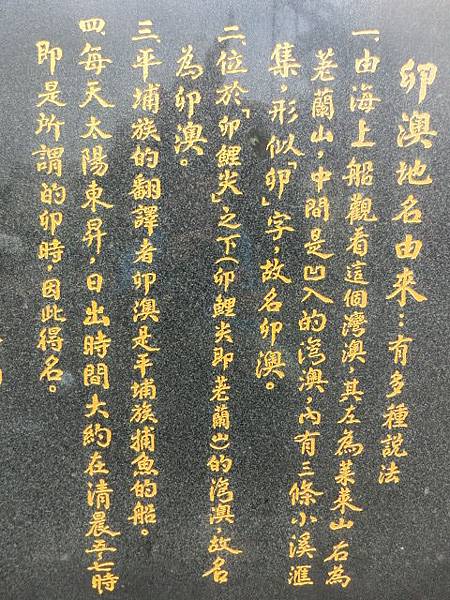 卯澳地名由來：有多種說法
一、由海上船觀看這個灣澳，其左為萊萊山右為
荖蘭山，中間是凹入的灣澳，內有三條小溪滙
集，形似「卯」字，故名卯澳。
二、位於「卯鯉尖」之下（卯鯉尖即荖蘭山）的灣澳，故名
為卯澳。
三、平埔族的翻譯者卯澳是平埔族捕魚的船。
四、每天太陽東昇，日出時間大約在清晨五～七時
即是所謂的卯時，因此得名。